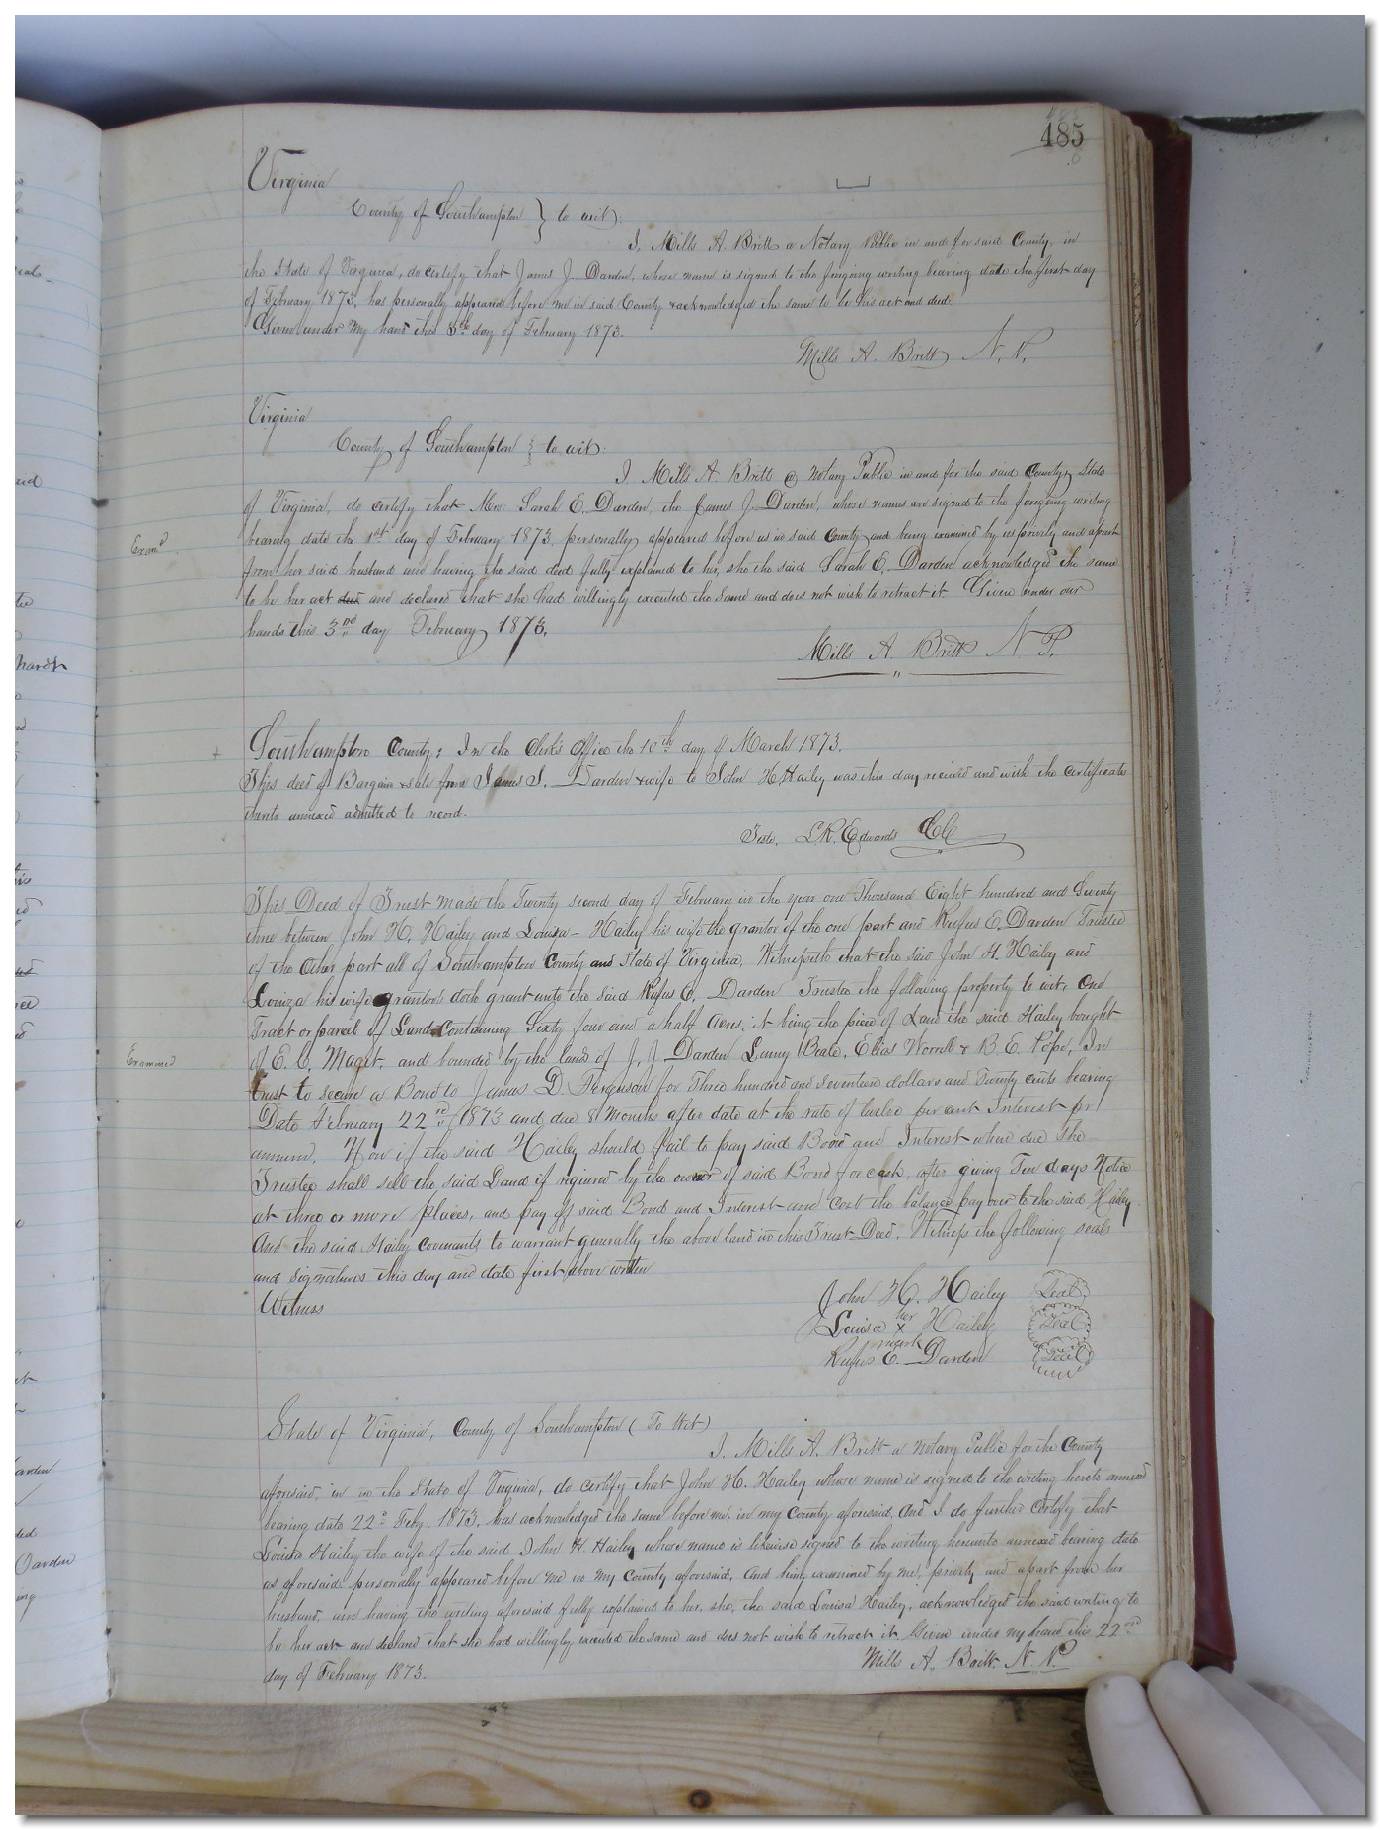 485
Virginia
County of Southampton } to wit:
I, Mills A. Britt a Notary Public in and for said County, in
the State of Virginia, do certify that James J. Darden, whose name is signed to the forgoing writing bearing date the first day
of February 1873, has personally appeared before me in said County & acknowledged the same to be his act and deed.
Given under my hand this 8th day of February 1873.
Mills A. Britt N. P.
Virginia
County of Southampton } to wit:
I Mills A. Britt a Notary Public in and for the said County, State
of Virginia, do certify that Mrs Sarah E. Darden, the James J. Darden, whose names are signed to the forgoing writing
Exam'd
bearing date the 1st day of February 1873 personally appeared before us in said County and being examined by us privily and apart
from her said husband and having the said deed fully explained to her, she the said Sarah E. Darden acknowledged the same
to be her act deed and declared that she had willingly executed the same and does not wish to retract it Given under our
hands this 3rd day February 1873.
Mills A. Britt N P.
Southampton County; In the Clerk's Office the 10th day of March 1873.
This deed of Bargain & sale from James J. Darden & wife to John H Hailey was this day received and with the certificate
thereto annexed admitted to record.
Teste, L. R. Edwards CC
This Deed of Trust made the Twenty second day of February in the year one Thousand Eight hundred and Seventy
three between John H. Hailey and Louisa Hailey his wife the grantor of the one part and Rufus E. Darden Trustee
of the other part all of Southampton County and State of Virginia, Witnesseth that the said John H. Hailey and
Louiza his wife grantors doth grant unto the said Rufus E. Darden Trustee the following property to wit, One
Tract or parcel of Land Containing Sixty four and a half Acres, it being the piece of Land the said Hailey bought
Examined
of E. C. Maget, and bounded by the land of J. J. Darden Lenny Beale, Elias Worrell & B. E. Pope, In
trust to secure a Bond to James D. Ferguson for Three hundred and seventeen dollars and Twenty cents bearing
Date February 22nd 1873 and due 8 Months after date at the rate of twelve per cent Interest per
annum. Now if the said Hailey should fail to pay said Bond and Interest when due the
Trustee shall sell the said Land if required by the owner of said Bond for cash, after giving Ten days Notice
at three or more places, and pay off said Bond and Interest and Cost the balance pay over to the said Hailey.
And the said Hailey covenants to warrant generally the above land in this Trust Deed. Witness the following seals
and signatures this day and date first above written
Witness
John H. Hailey Seal
Louisa her x mark Hailey Seal
Rufus E. Darden Seal
State of Virginia, County of Southampton (To Wit)
I, Mills A. Britt a Notary Public for the County
aforesaid, in in the State of Virginia, do certify that John H. Hailey whose name is signed to the writing hereto annexed
bearing date 22nd Feby. 1873, has acknowledged the same before me, in my County aforesaid, And I do further certify that
Louisa Hailey the wife of the said John H. Hailey whose name is likewise signed to the writing hereunto annexed bearing date
as aforesaid personally appeared before me in my County aforesaid, And being examined by me, privily and apart from her
husband, and having the writing aforesaid fully explained to her, she, the said Louisa Hailey, acknowledged the said writing to
be her act and declared that she had willingly executed the same and does not wish to retract it. Given under my hand this 22nd
day of February 1873.
Mills A. Britt N. P.